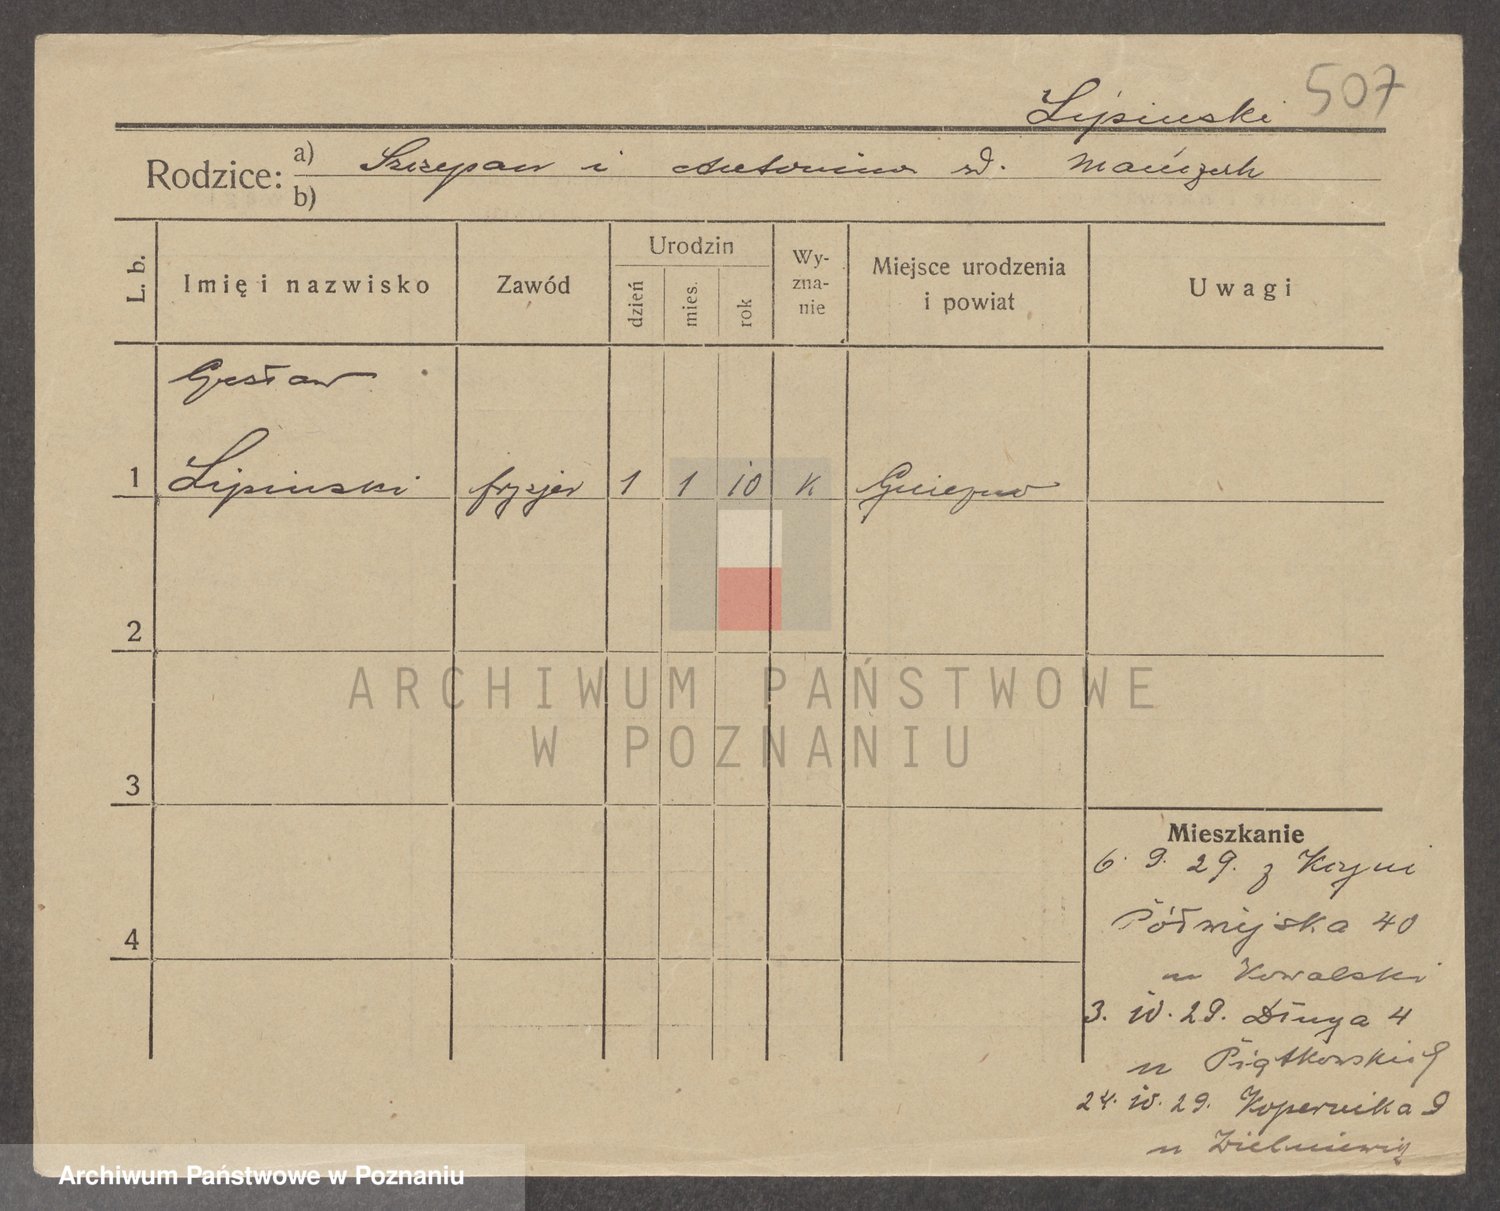 507
Lipinski
Rodzice: a) Szczepan i Antonina zd.
b)
L. b.
Imię i nazwisko
Zawód
Urodzin
dzień
mies.
rok
Wy-
zna-
nie
Miejsce urodzenia
i powiat
Uwagi
Gustaw
1 Lipinski fryzjer 1 1 10 K Gniezno
2
3
4
Mieszkanie
6. 9. 29. z Kcyni
Półwiejska 40
u Kowalski
3. 10. 29. Długa 4
u
24. 10. 29. Kopernika 9
u
ARCHIWUM PAŃSTWOWE
W POZNANIU
Archiwum Państwowe w Poznaniu